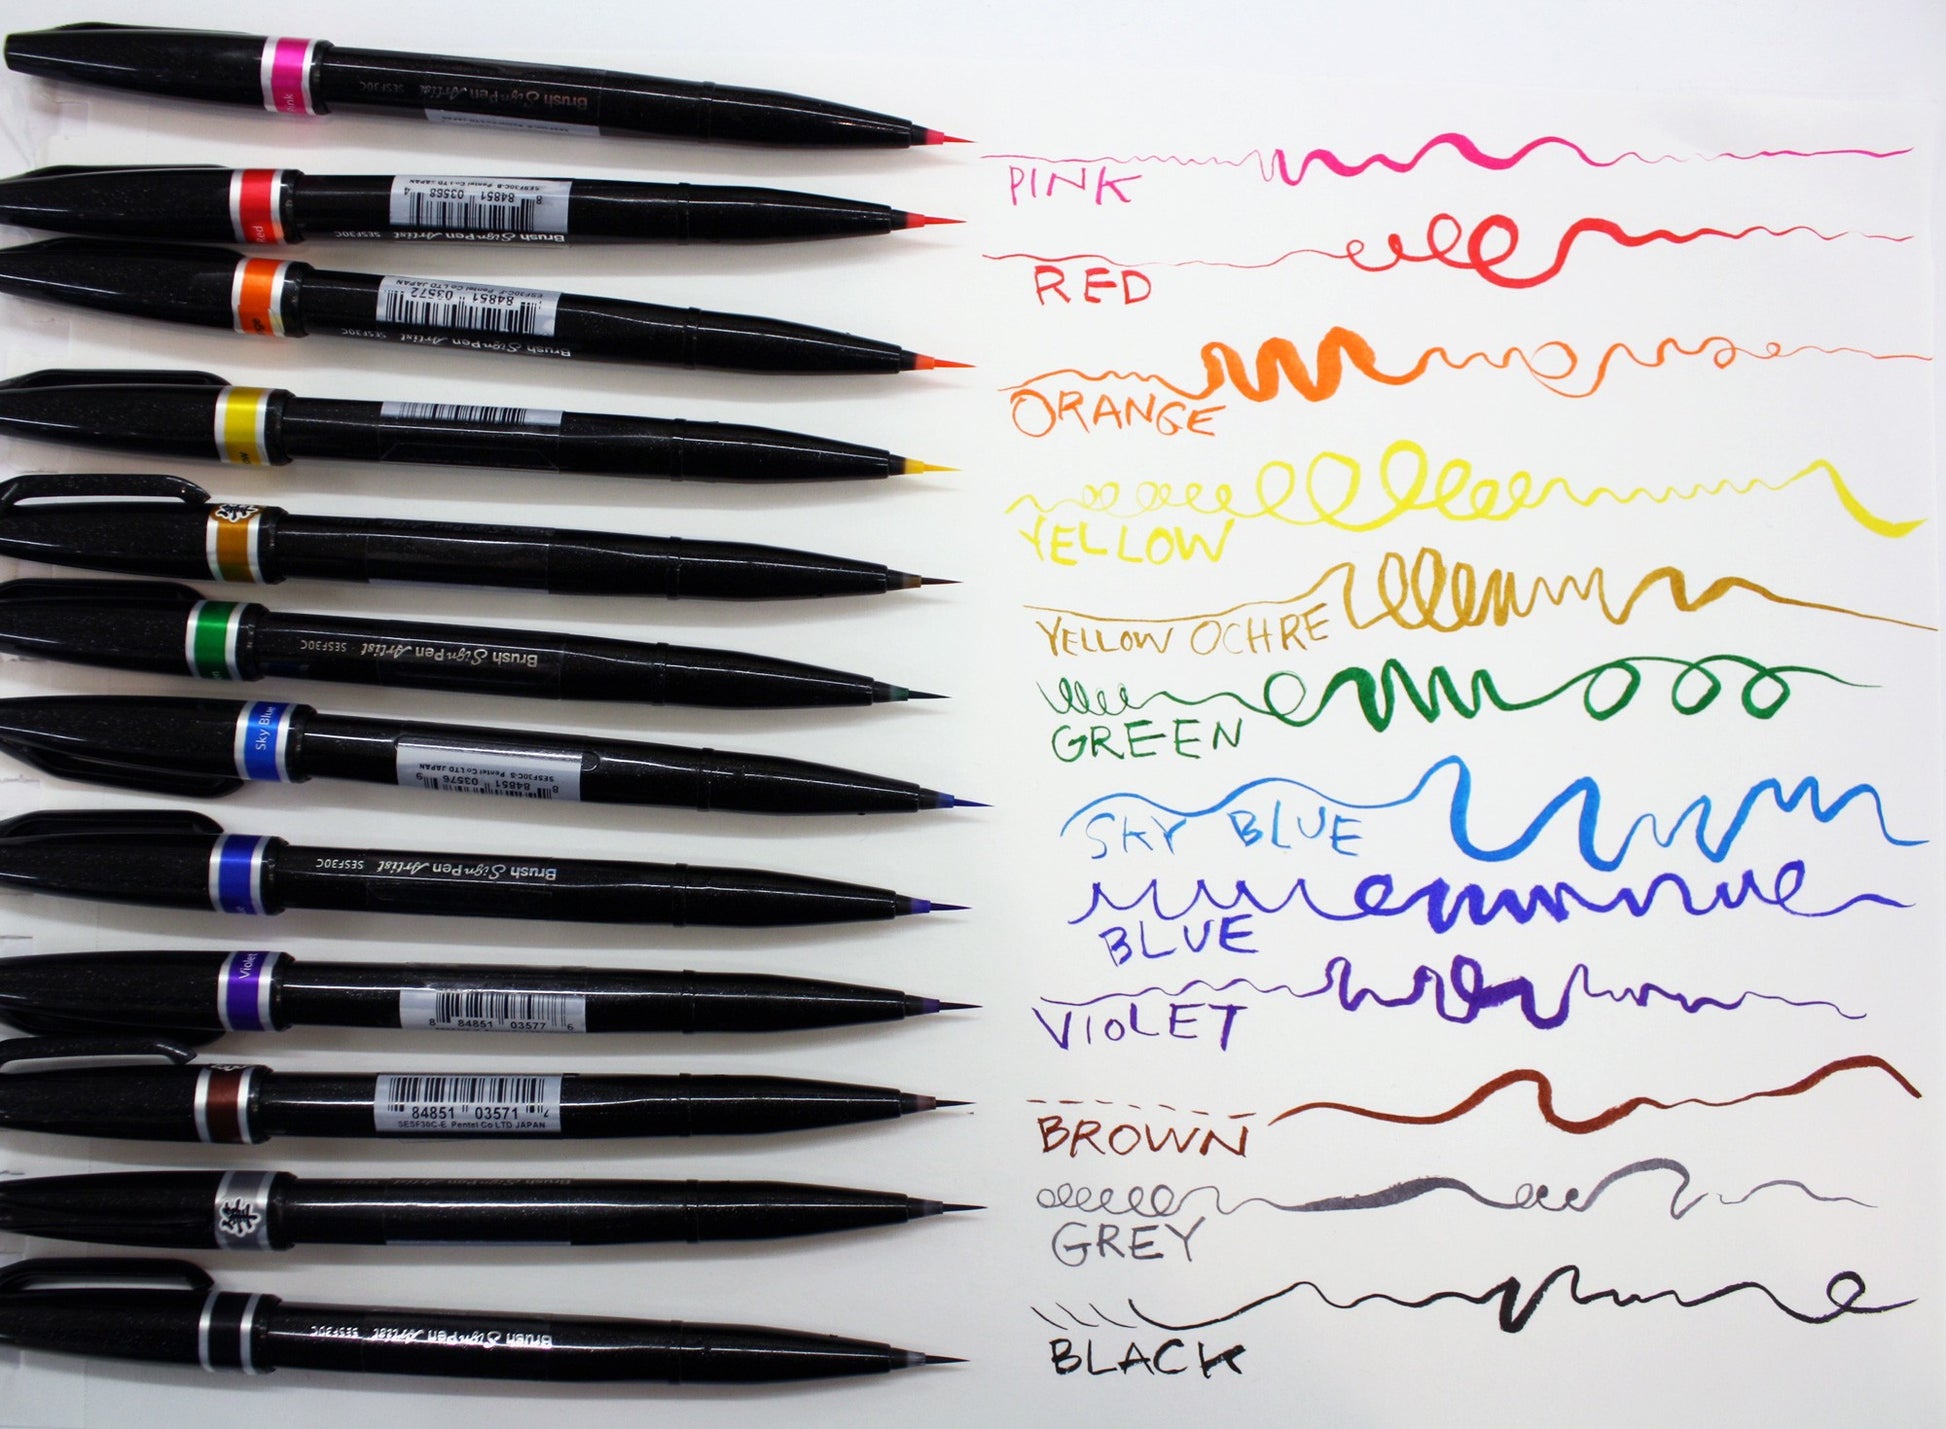 Pink
Brush Sign Pen Artist SESF30C
PINK
Red
8 84851 03568 4
SESF30C-B Pentel Co LTD JAPAN
Brush Sign Pen Artist SESF30C
RED
84851 03572
SESF30C-F Pentel Co LTD JAPAN
Brush Sign Pen Artist SESF30C
ORANGE
YELLOW
YELLOW OCHRE
Brush Sign Pen Artist SESF30C
GREEN
Sky Blue
8 84851 03576 9
SESF30C-S Pentel Co LTD JAPAN
SKY BLUE
Brush Sign Pen Artist SESF30C
BLUE
Violet
8 84851 03577 6
VIOLET
84851 03571 7
SESF30C-E Pentel Co LTD JAPAN
BROWN
筆
GREY
Brush Sign Pen Artist SESF30C
BLACK